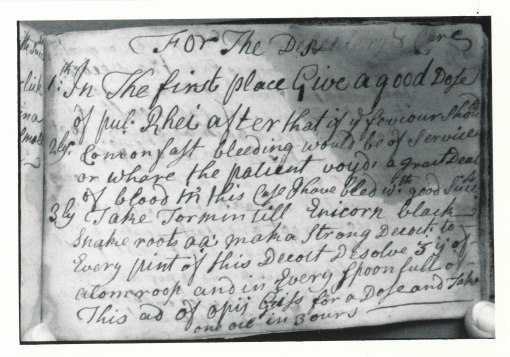 For The Desentery Cure
1th In The first place Give a good Dose
of pul. Rhei after that if ye feviour Should
2ly. Com on fast bleeding would be of Service
or whare the patient voyds a great Deal
of blood in this Case I have bled wth good Success
3ly Take Tormintill Unicorn black
Snake roots aa: mak a Strong Decoit: to
Every pint of this Decoit Desolve ʒij of
alom roop and in Every Spoonfull of
This ad of opij Griss for a Dose and Take
one oie in 3 ours